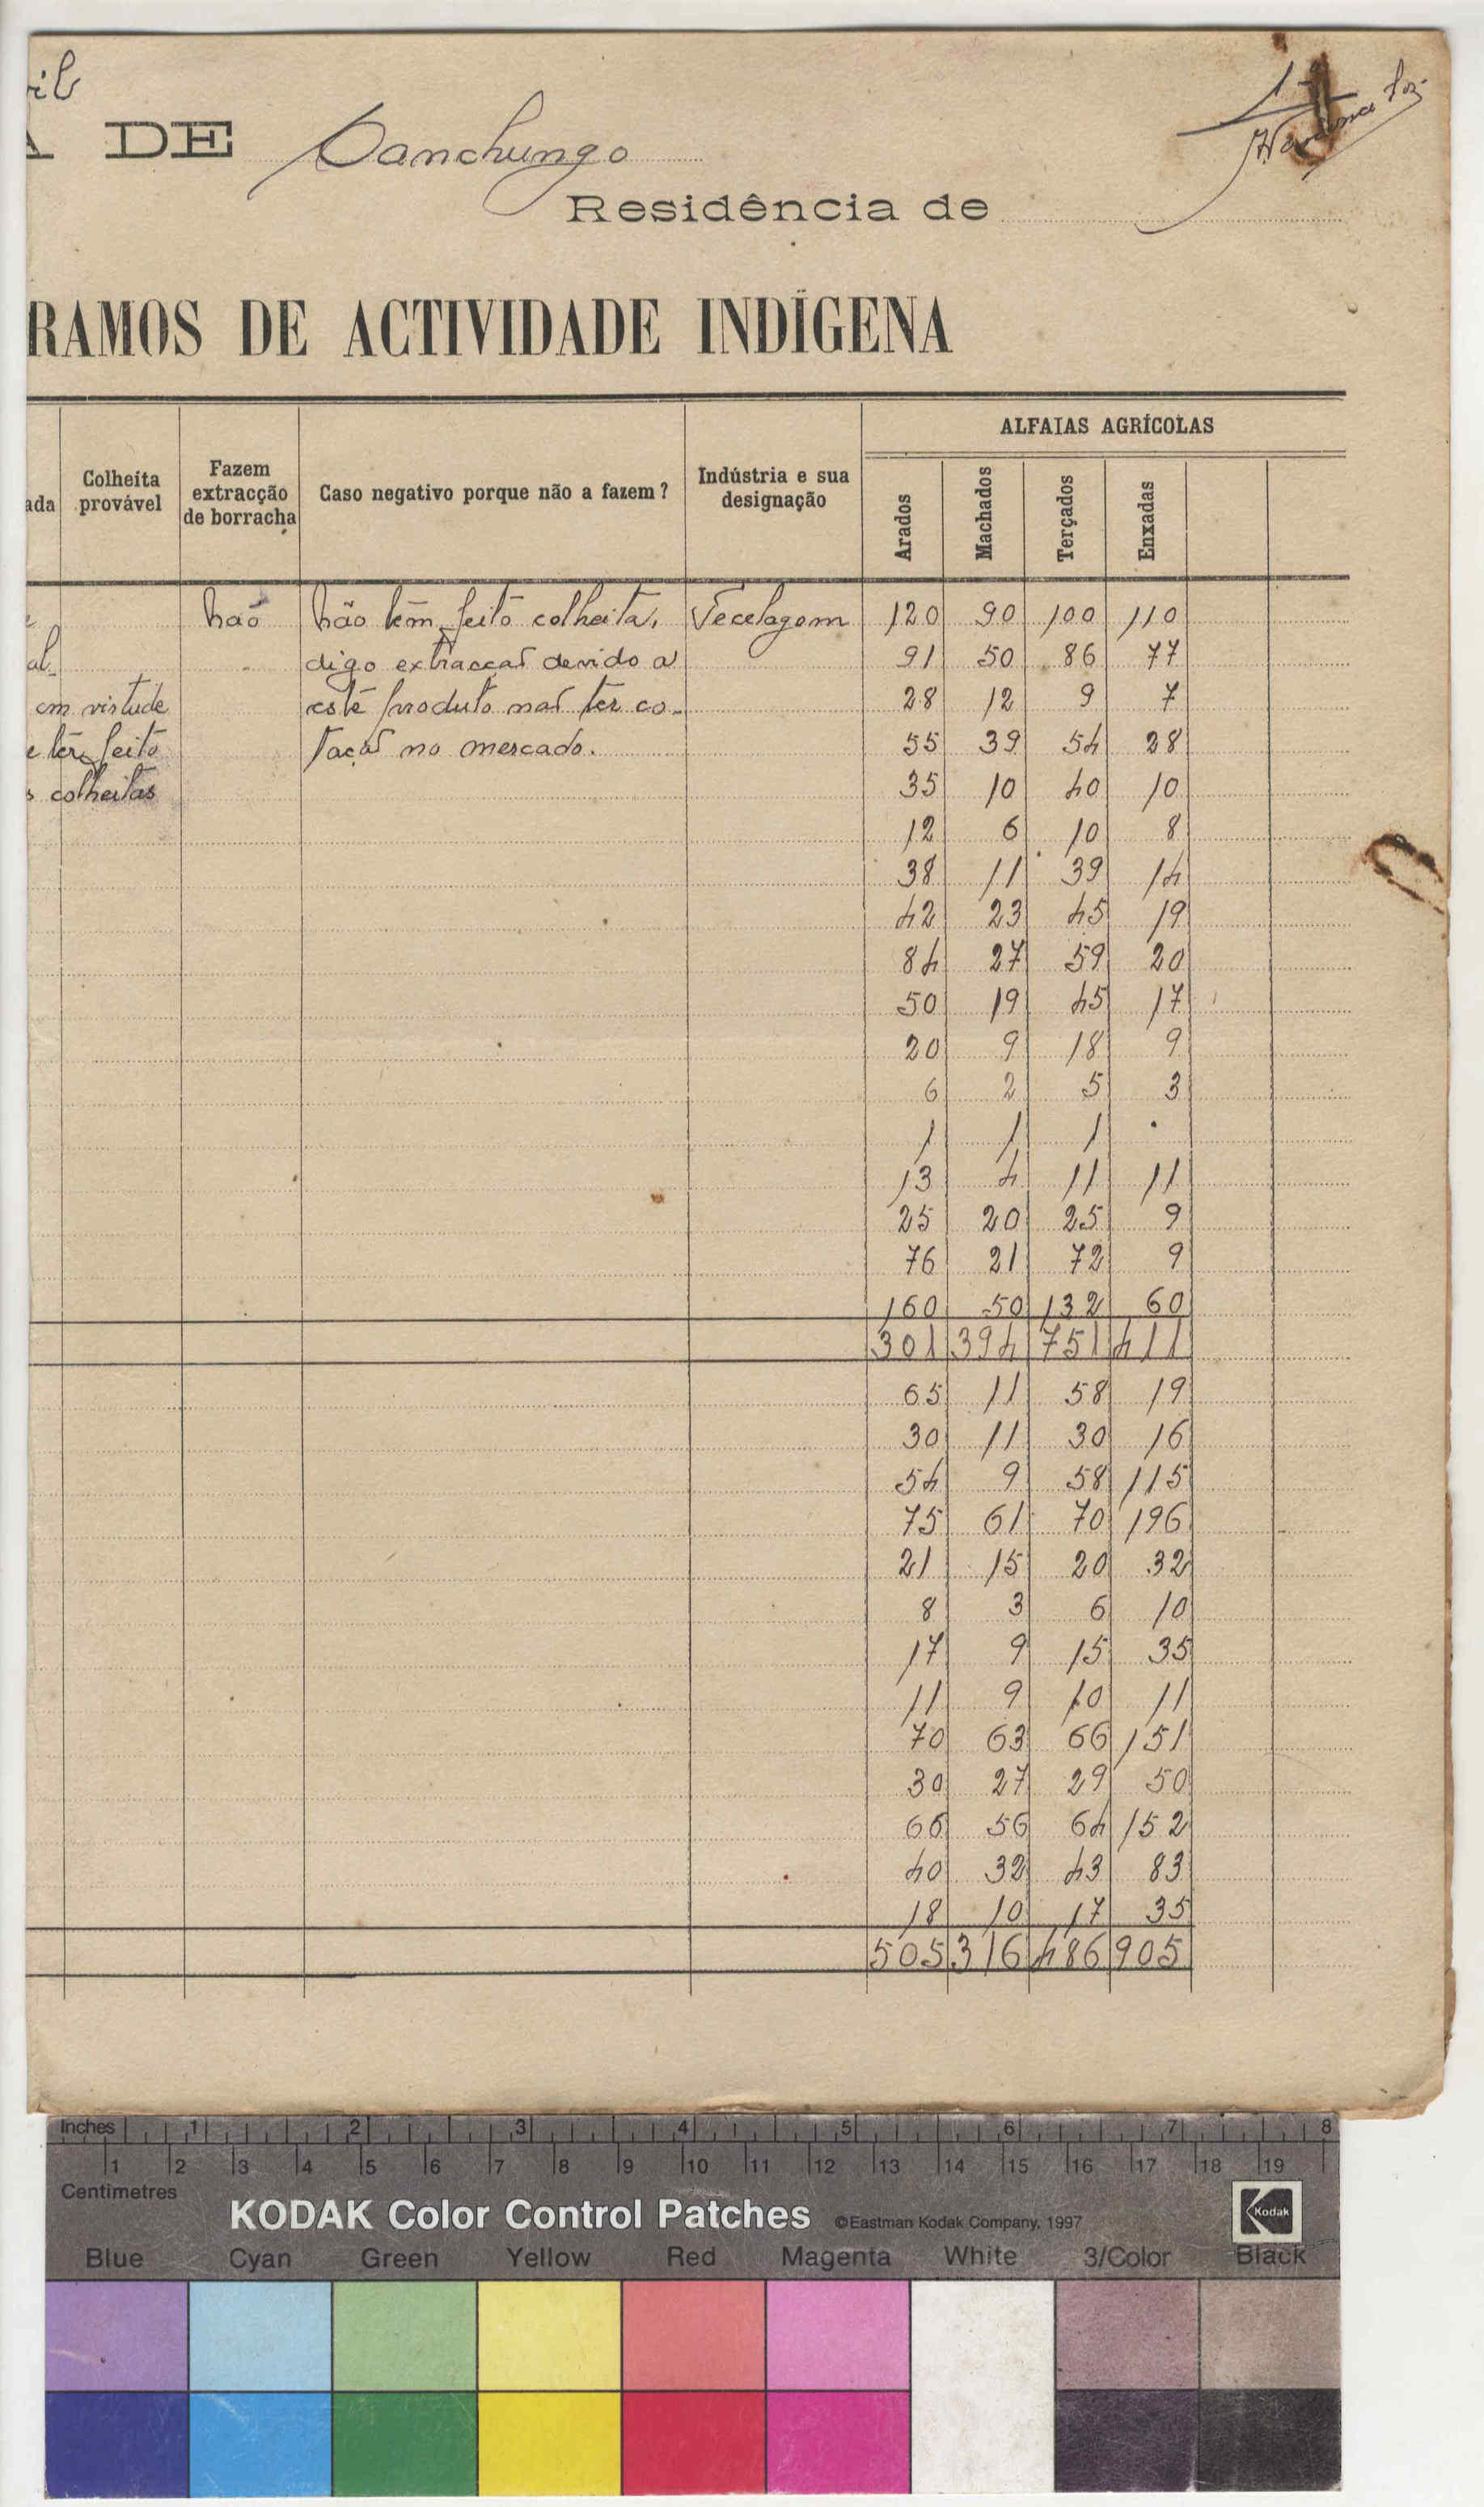 il
A DE Canchungo
Residência de
RAMOS DE ACTIVIDADE INDÍGENA
ada Colheita provável Fazem extracção de borracha Caso negativo porque não a fazem? Indústria e sua designação ALFAIAS AGRÍCOLAS
Arados Machados Terçados Enxadas
não não tem feito colheita, Tecelagem 120 90 100 110
al digo extracçaõ devido a 91 50 86 77
em virtude este produto naõ ter co- 28 12 9 7
e têm feito taçaõ no mercado. 55 39 54 28
s colheitas 35 10 40 10
12 6 10 8
38 11 39 14
42 23 45 19
84 27 59 20
50 19 45 17
20 9 18 9
6 2 5 3
1 1 1 .
13 4 11 11
25 20 25 9
76 21 72 9
160 50 132 60
301 394 751 411
65 11 58 19
30 11 30 16
54 9 58 115
75 61 70 196
21 15 20 32
8 3 6 10
17 9 15 35
11 9 10 11
70 63 66 151
30 27 29 50
66 56 64 152
40 32 43 83
18 10 17 35
505 316 486 905
Inches 1 2 3 4 5 6 7 8
1 2 3 4 5 6 7 8 9 10 11 12 13 14 15 16 17 18 19
Centimetres
KODAK Color Control Patches ©Eastman Kodak Company, 1997 Kodak
Blue Cyan Green Yellow Red Magenta White 3/Color Black